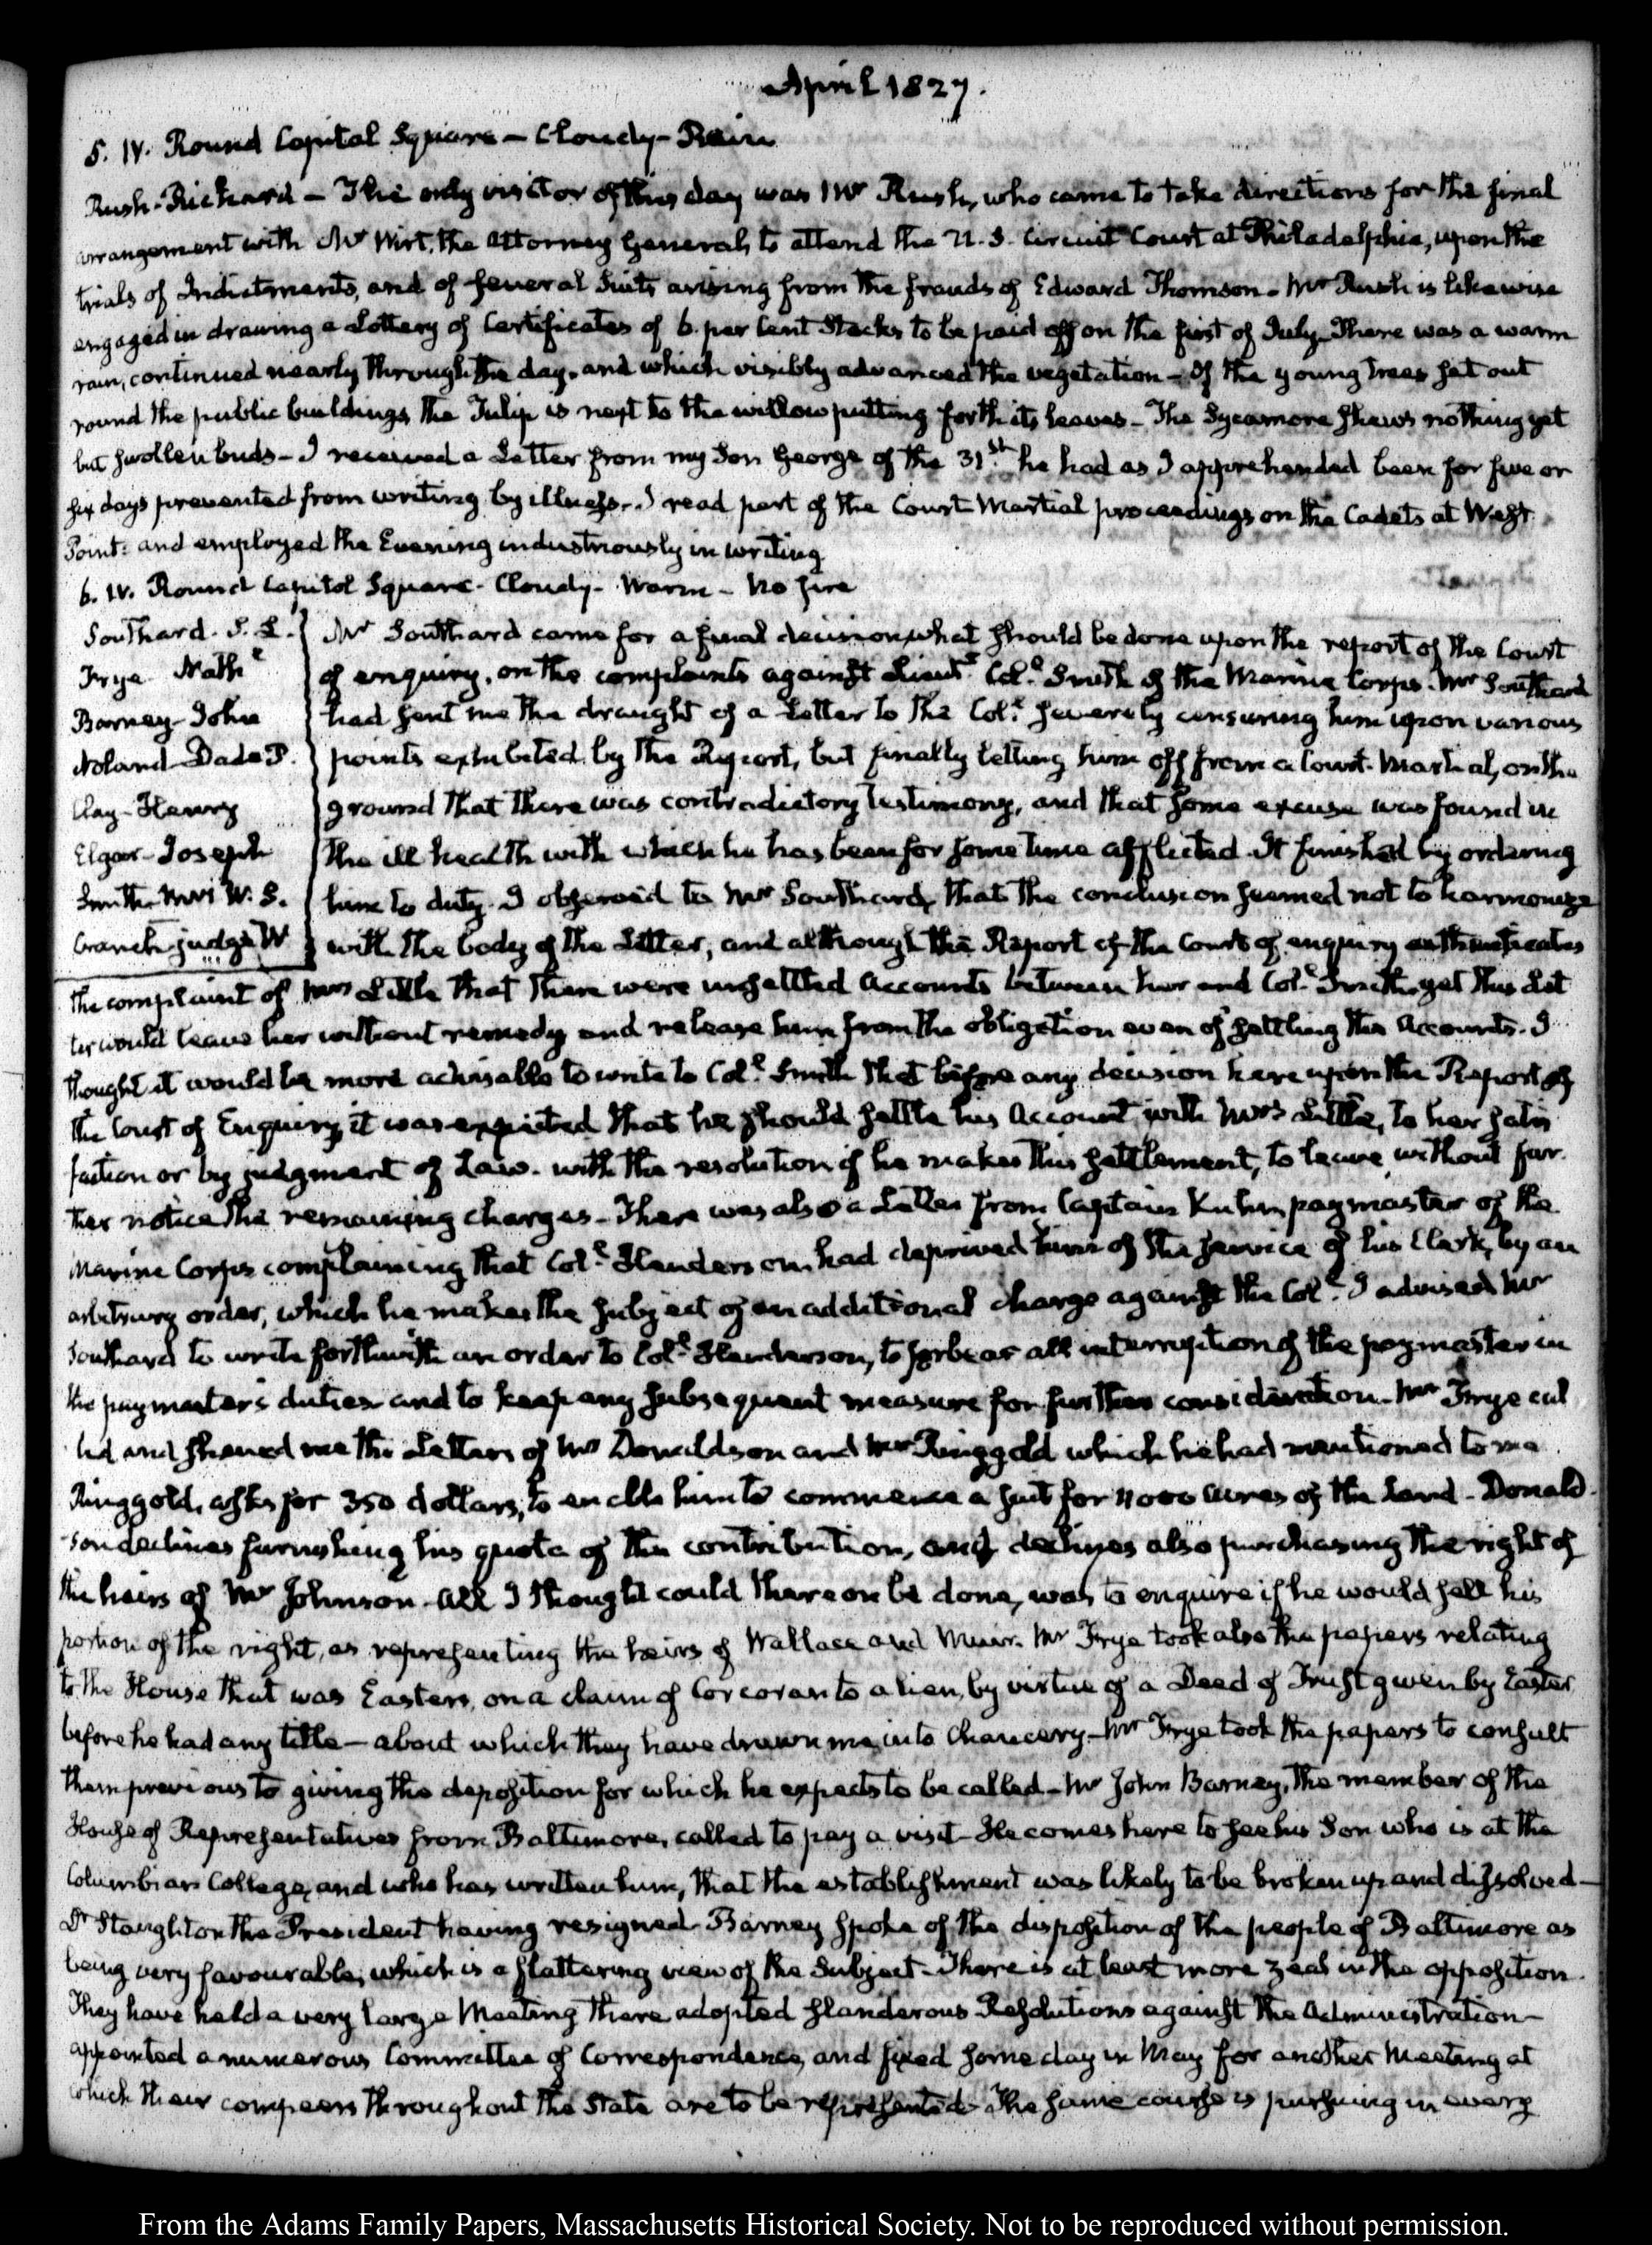 April 1827.
5. IV. Round Capitol Square — Cloudy — Rain
Rush. Richard — The only visitor of this day was Mr Rush, who came to take directions for the final
arrangement with Mr Wirt, the Attorney General, to attend the U.S. Circuit Court at Philadelphia, upon the
trials of Indictments, and of several Suits arising from the frauds of Edward Thomson — Mr Rush is likewise
engaged in drawing a Lottery of Certificates of 6. per Cent Stocks to be paid off on the first of July. There was a warm
rain, continued nearly through the day, and which visibly advanced the vegetation — Of the young trees set out
round the public buildings the Tulip is next to the willow putting forth its leaves — The Sycamore shews nothing yet
but swollen buds — I received a Letter from my Son George of the 31st. he had as I apprehended been for five or
six days prevented from writing by illness. I read part of the Court Martial proceedings on the Cadets at West
Point: and employed the Evening industriously in writing
6. IV. Round Capitol Square. Cloudy — Warm — No fire
Southard. S. L. Mr Southard came for a final decision, what should be done upon the report of the Court
Frye Nathl of enquiry, on the complaints against Lieutt. Coll. Smith of the Marine Corps. Mr Southard
Barney John had sent me the draught of a Letter to the Coll. severely censuring him upon various
Noland Dade P. points exhibited by the Report, but finally letting him off from a Court-Martial, on the
Clay — Henry ground that there was contradictory testimony, and that some excuse was found in
Elgar — Joseph the ill health with which he has been for some time afflicted. It finished by ordering
Smith Mrs W. S. him to duty. I observed to Mr Southard, that the conclusion seemed not to harmonize
Cranch judge W with the body of the Letter, and although the Report of the Court of enquiry authenticates
the complaint of Mrs Little that there were unsettled Accounts between her and Coll. Smith, yet this Let
ter would leave her without remedy and release him from the obligation even of settling the Accounts. I
thought it would be more advisable to write to Coll. Smith that before any decision here upon the Report of
the Court of Enquiry, it was expected that he should settle his Account with Mrs Little, to her satis
faction or by judgment of Law. with the resolution if he makes this settlement, to leave without fur.
ther notice the remaining charges — There was also a Letter from Captain Kuhn paymaster of the
Marine Corps complaining that Coll. Henderson had deprived him of the service of his Clerk, by an
arbitrary order, which he makes the subject of an additional charge against the Coll. I advised Mr
Southard to write forthwith an order to Coll. Henderson, to forbear all interruption of the paymaster in
the paymaster's duties and to keep any subsequent measure for further consideration. Mr Frye cal
led and shewed me the Letters of Mr Donaldson and Mr Ringgold which he had mentioned to me
Ringgold, asks for 350 dollars, to enable him to commence a suit for 11000 acres of the Land — Donald
son declines furnishing his quota of the contribution, and declines also purchasing the right of
the heirs of Mr Johnson. All I thought could thereon be done, was to enquire if he would sell his
portion of the right, as representing the heirs of Wallace and Muir. Mr Frye took also the papers relating
to the House that was Easters, on a claim of Corcoran to a lien, by virtue of a Deed of Trust given by Easter
before he had any title — about which they have drawn me into Chancery. Mr Frye took the papers to consult
them previous to giving the deposition for which he expects to be called — Mr John Barney, the member of the
House of Representatives from Baltimore, called to pay a visit — He comes here to see his Son who is at the
Columbian College, and who has written him, that the establishment was likely to be broken up and dissolved —
Dr Staughton the President having resigned. Barney spoke of the disposition of the people of Baltimore as
being very favourable, which is a flattering view of the Subject — There is at least more zeal in the opposition.
They have held a very large Meeting there adopted slanderous Resolutions against the Administration —
appointed a numerous Committee of Correspondence, and fixed some day in May for another Meeting at
which their compeers throughout the State are to be represented. The same course is pursuing in every
From the Adams Family Papers, Massachusetts Historical Society. Not to be reproduced without permission.